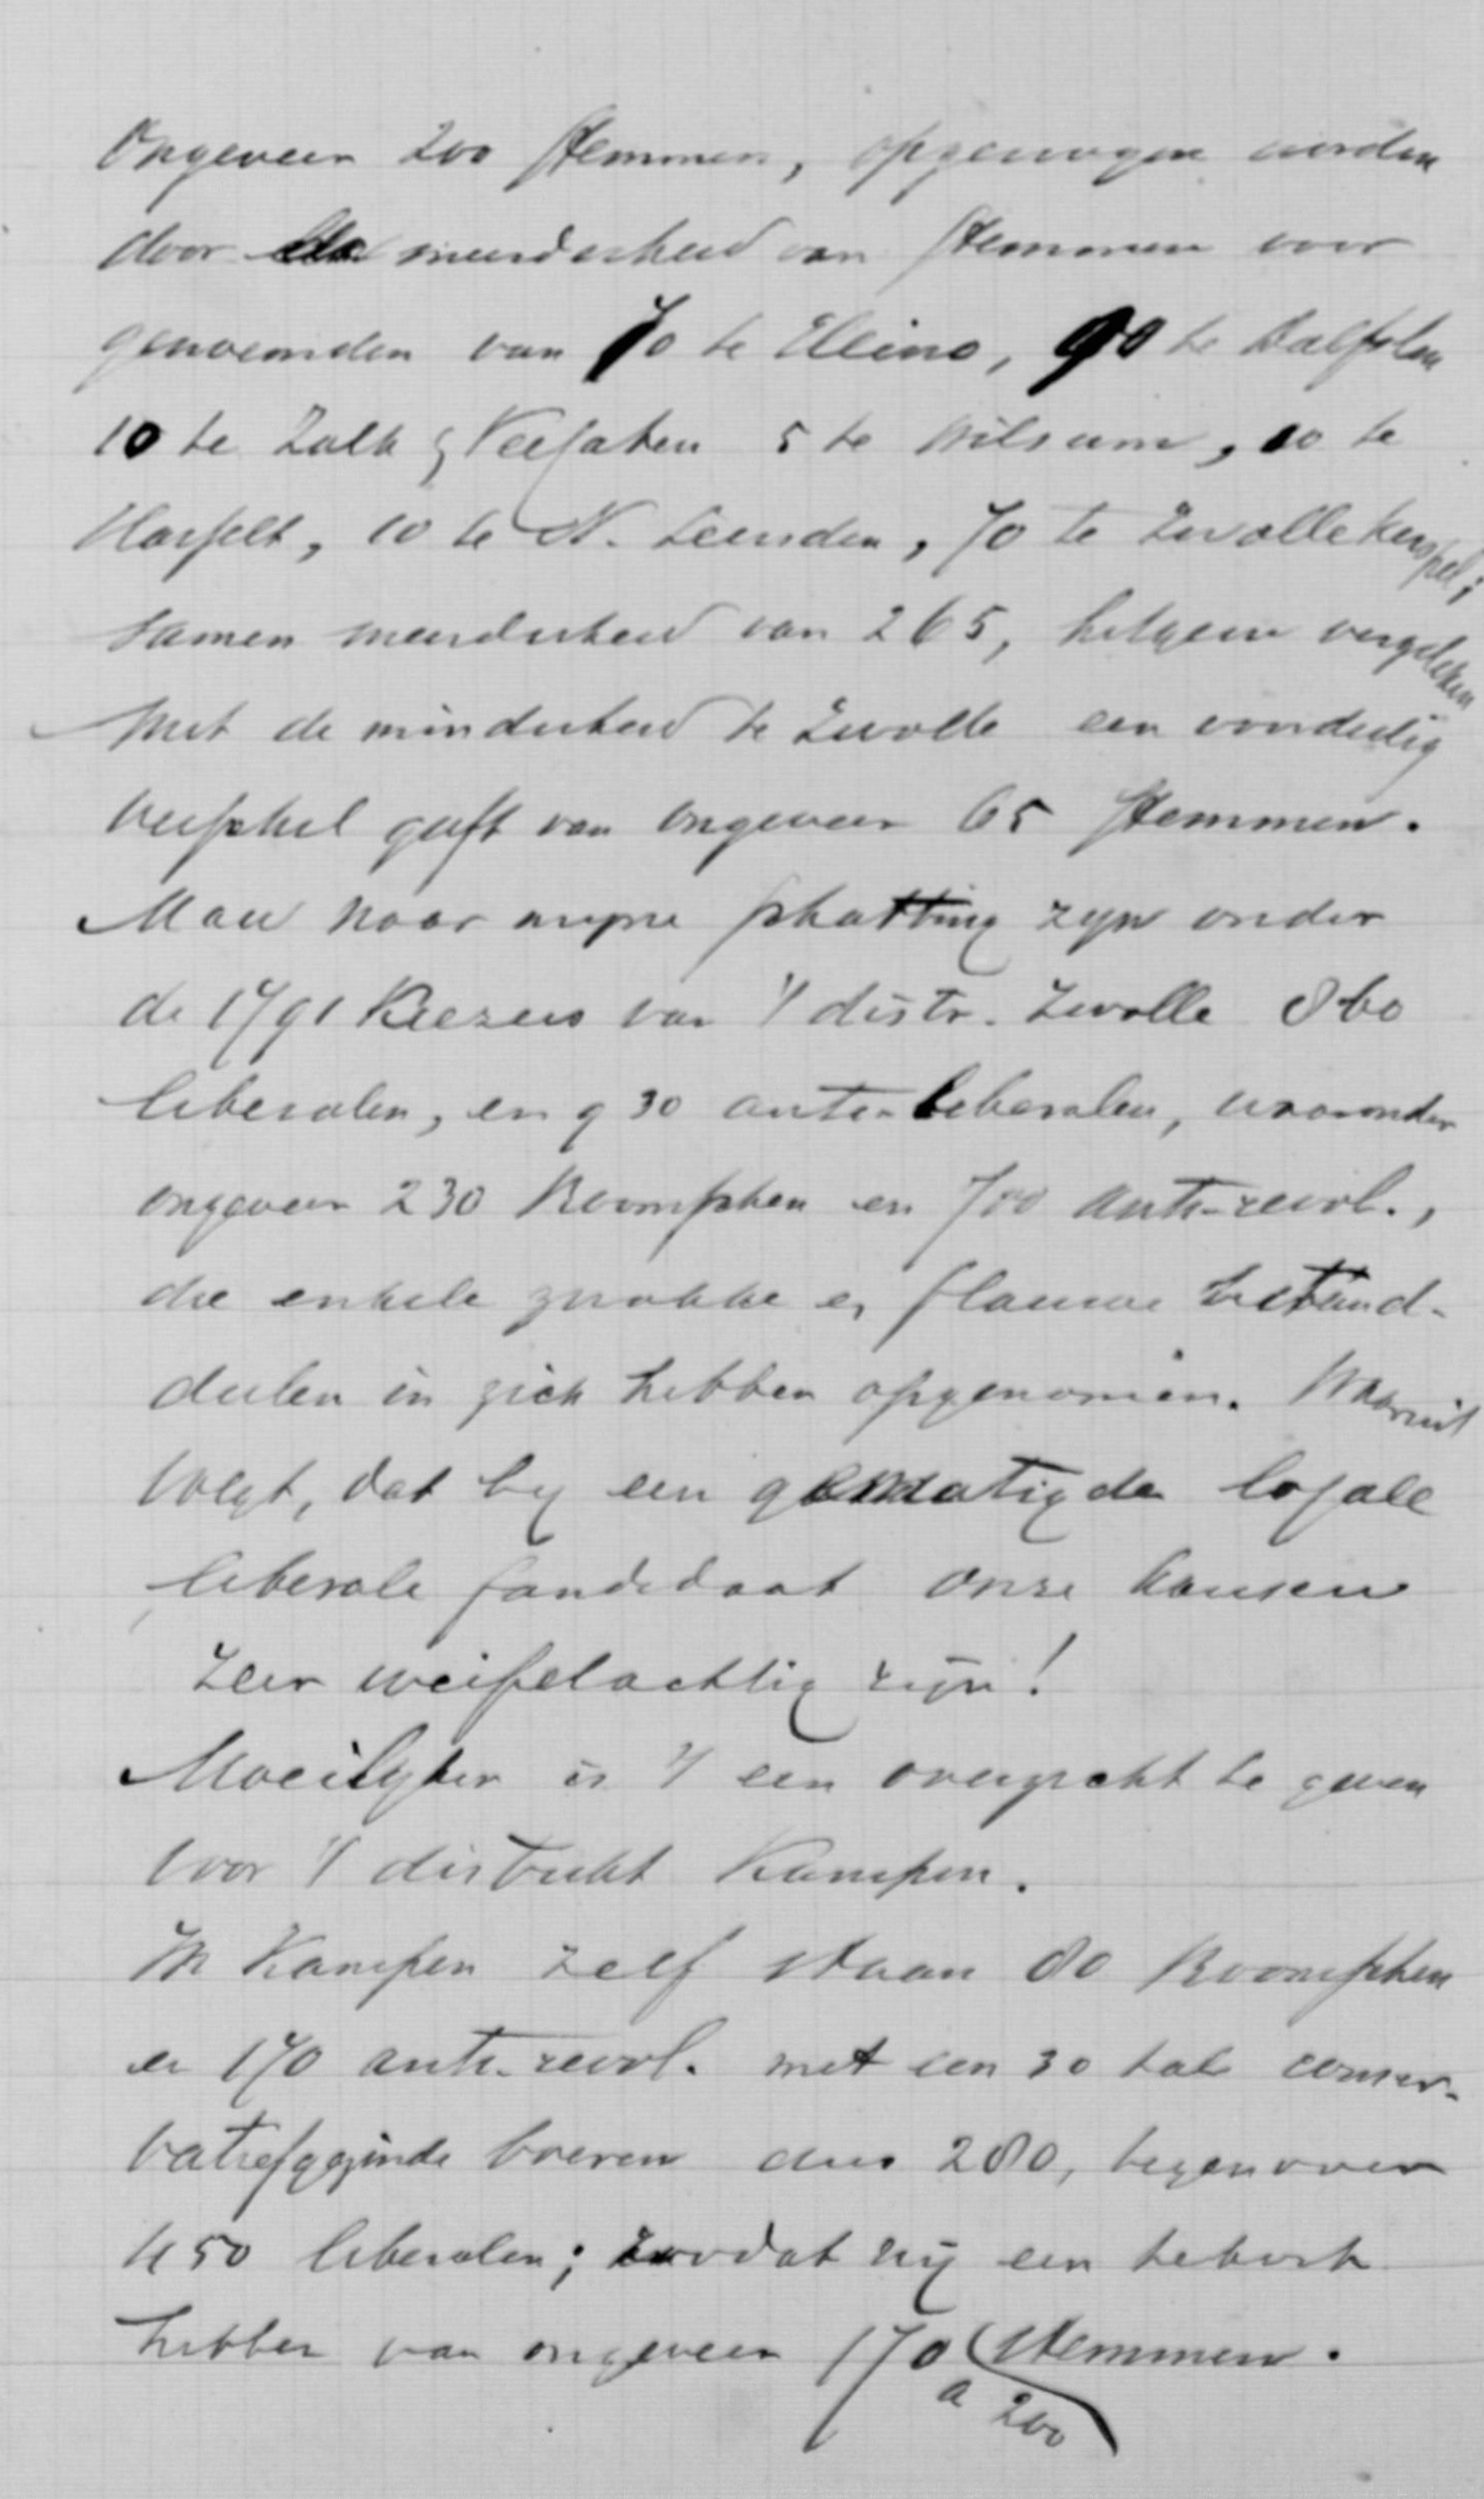 ongeveer 200 stemmen, opgewogen worden
door de meerderheid van stemmen voor
genoemden van 70 te Heino, 90 te Dalfsen
10 te Zalk & Veecaten 5 te Wilsum, 10 te
Hasselt, 10 te N. Leusden, 70 te Zwollekerspel;
samen meerderheid van 265, hetgeen vergeleken
met de minderheid te Zwolle een voordeelig
verschil geeft van ongeveer 65 stemmen.
Maar naar mijne schatting zijn onder
de 1791 kiezers van 't distr. Zwolle 860
liberalen, en 930 anti-liberalen, waaronder
ongeveer 230 Roomschen en 700 anti-revol.,
die enkele zwakke en flauwe bestand-
deelen in zich hebben opgenomen. Waaruit
volgt, dat bij een gematigde loyale
liberale candidaat onze kansen
zeer weifelachtig zijn!
Moeilijker is 't een overzicht te geven
voor 't distrikt Kampen.
In Kampen zelf staan 80 Roomschen
en 170 anti-revol. met een 30 tal conser-
vatiefgezinde boeren dus 280, tegenover
450 liberalen; zoodat wij een tekort
hebben van ongeveer 170 stemmen.
a 200